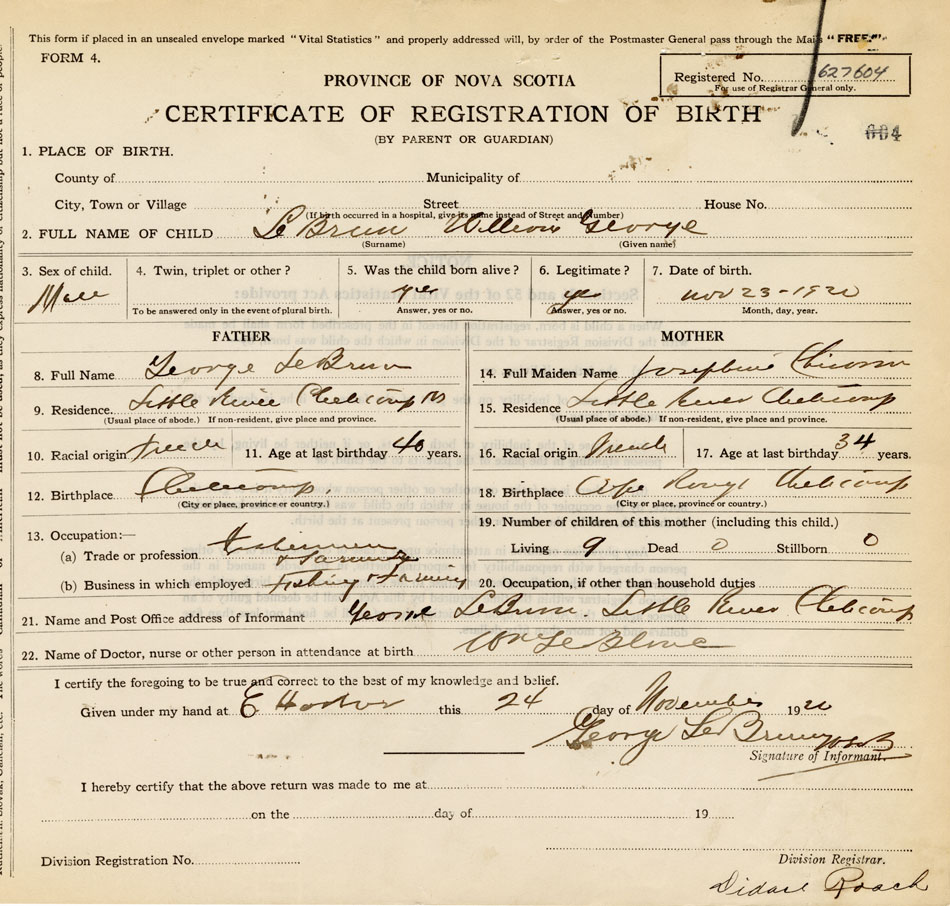 This form if placed in an unsealed envelope marked "Vital Statistics" and properly addressed will, by order of the Postmaster General pass through the Mails "FREE."
FORM 4.
PROVINCE OF NOVA SCOTIA
Registered No. 627604
For use of Registrar General only.
CERTIFICATE OF REGISTRATION OF BIRTH
(BY PARENT OR GUARDIAN)
004
1. PLACE OF BIRTH.
County of Municipality of
City, Town or Village Street House No.
(If birth occurred in a hospital, give its name instead of Street and Number)
2. FULL NAME OF CHILD LeBrun William George
(Surname) (Given name)
3. Sex of child. 4. Twin, triplet or other? 5. Was the child born alive? 6. Legitimate? 7. Date of birth.
Male yes yes nov 23-1920
To be answered only in the event of plural birth. Answer, yes or no. Answer, yes or no. Month, day, year.
FATHER MOTHER
8. Full Name George LeBrun 14. Full Maiden Name Josephine
9. Residence. Little River Cheticamp 15. Residence Little River Cheticamp
(Usual place of abode.) If non-resident, give place and province. (Usual place of abode.) If non-resident, give place and province.
10. Racial origin French 11. Age at last birthday 40 years. 16. Racial origin French 17. Age at last birthday 34 years.
12. Birthplace Cheticamp. 18. Birthplace Cape Rouge Cheticamp
(City or place, province or country.) (City or place, province or country.)
13. Occupation:— 19. Number of children of this mother (including this child.)
(a) Trade or profession & Farming Living 9 Dead 0 Stillborn 0
(b) Business in which employed Fishing & Farming 20. Occupation, if other than household duties
21. Name and Post Office address of Informant George LeBrun. Little River Cheticamp
22. Name of Doctor, nurse or other person in attendance at birth Wm LeBlanc
I certify the foregoing to be true and correct to the best of my knowledge and belief.
Given under my hand at E Harbor this 24 day of November 1920
George LeBrun
Signature of Informant.
I hereby certify that the above return was made to me at
on the day of 19
Division Registration No. Division Registrar.
Roach